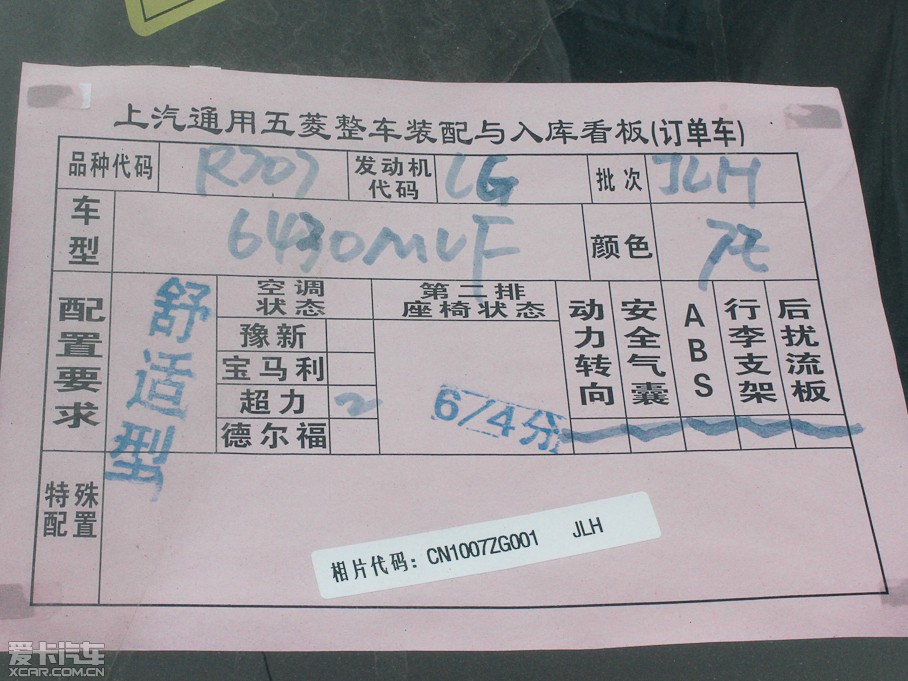 上汽通用五菱整车装配与入库看板(订单车)
品种代码 R707 发动机代码 LG 批次 JLH
车型 6430MVF 颜色
配置要求 舒适型 空调状态 第二排座椅状态 动力转向 安全气囊 ABS 行李支架 后扰流板
豫新
宝马利
超力 2
德尔福
6/4分
特殊配置
相片代码：CN1007ZG001 JLH
爱卡汽车
XCAR.COM.CN